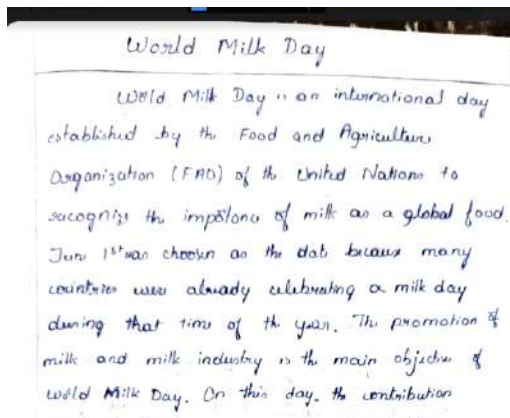 World Milk Day
World Milk Day is an international day
established by the Food and Agriculture
Organization (FAO) of the United Nations to
recognize the importance of milk as a global food.
June 1st was choosen as the date because many
countries were already celebrating a milk day
during that time of the year. The promotion of
milk and milk industry is the main objective of
World Milk Day. On this day, the contribution